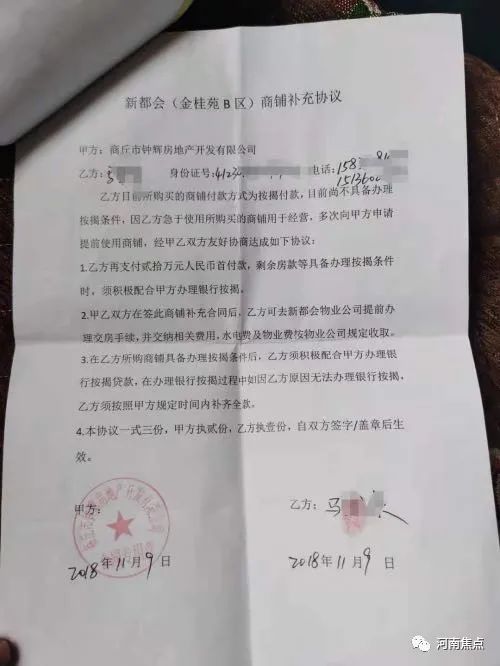 新都会（金桂苑 B 区）商铺补充协议
甲方：商丘市钟辉房地产开发有限公司
乙方：马 身份证号：4123 电话：158
1513600
乙方目前所购买的商铺付款方式为按揭付款，目前尚不具备办理
按揭条件，因乙方急于使用所购买的商铺用于经营，多次向甲方申请
提前使用商铺，经甲乙双方友好协商达成如下协议：
1.乙方再支付贰拾万元人民币首付款，剩余房款等具备办理按揭条件
时，须积极配合甲方办理银行按揭。
2.甲乙双方在签此商铺补充合同后，乙方可去新都会物业公司提前办
理交房手续，并交纳相关费用，水电费及物业费按物业公司规定收取。
3.在乙方所购商铺具备办理按揭条件后，乙方须积极配合甲方办理银
行按揭贷款，在办理银行按揭过程中如因乙方原因无法办理银行按揭，
乙方须按照甲方规定时间内补齐全款。
4.本协议一式三份，甲方执贰份，乙方执壹份，自双方签字/盖章后生
效。
甲方： 乙方：马
2018 年 11 月 9 日 2018 年 11 月 9 日
河南焦点